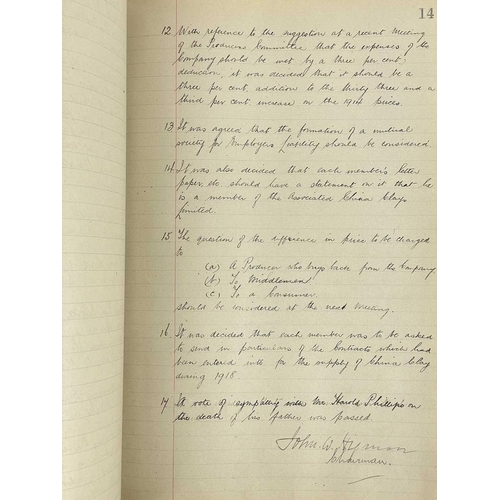 14
12 With reference to the suggestion at a recent Meeting
of the Producers Committee that the expenses of the
Company should be met by a three per cent:
deduction, it was decided that it should be a
three per cent. addition to the thirty three and a
third per cent increase on the 1914 prices.
13 It was agreed that the formation of a mutual
society for Employers Liability should be considered.
14 It was also decided that each members letter
paper, etc. should have a statement on it that he
is a member of the Associated China Clays
Limited.
15 The question of the difference in price to be charged
to
(a) A Producer who buys back from the Company
(b) To Middlemen
(c) To a Consumer
should be considered at the next Meeting.
16 It was decided that each member was to be asked
to send in particulars of the Contracts which had
been entered into for the supply of China Clay
during 1918
17 A vote of sympathy with Mr. Harold Phillips on
the death of his father was passed.
John W.
Chairman.